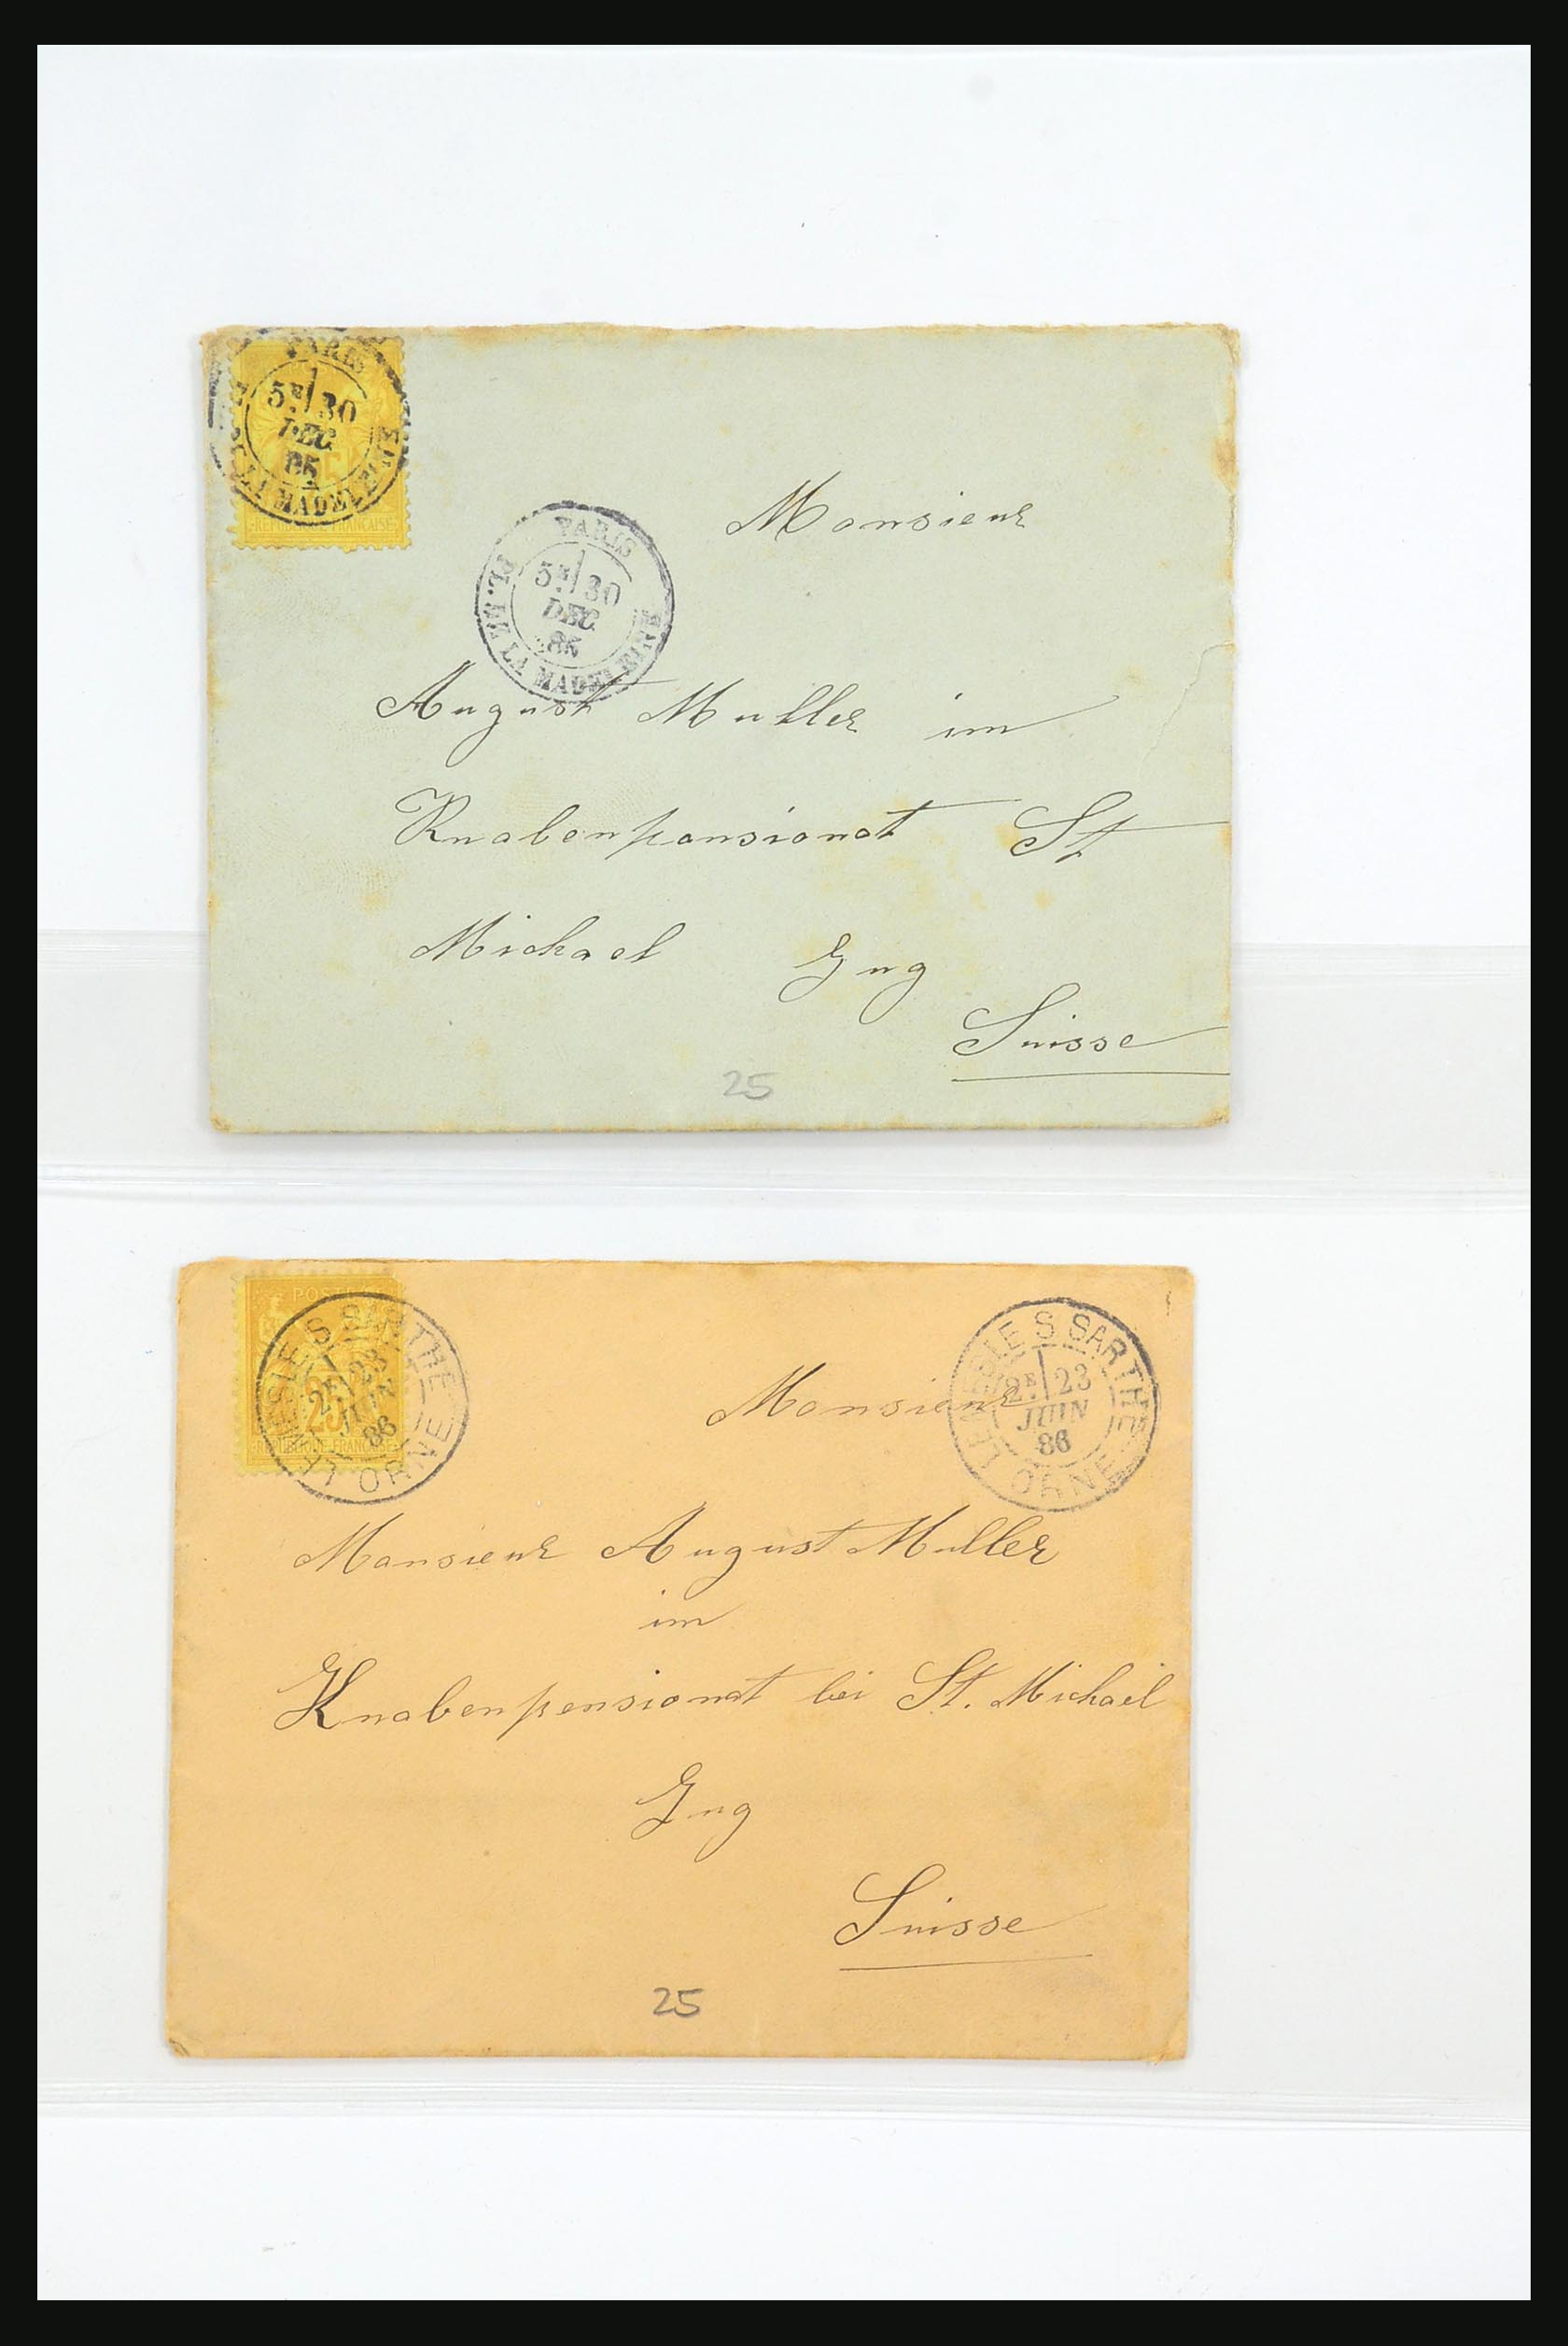 PARIS
5E 30
DEC.
85
PL. DE LA MADELEINE
PARIS
5E 30
DEC.
85
PL. DE LA MADELEINE
Monsieur
August Muller im
Knabenpensionat St
Michael Zug
Suisse
25
POSTES
25
REPUBLIQUE FRANCAISE
LE MESLE S SARTHE
2E 23
JUIN
86
ORNE
LE MESLE S SARTHE
2E 23
JUIN
86
ORNE
Monsieur
Monsieur August Muller
im
Knabenpensionat bei St. Michaël
Zug
Suisse
25